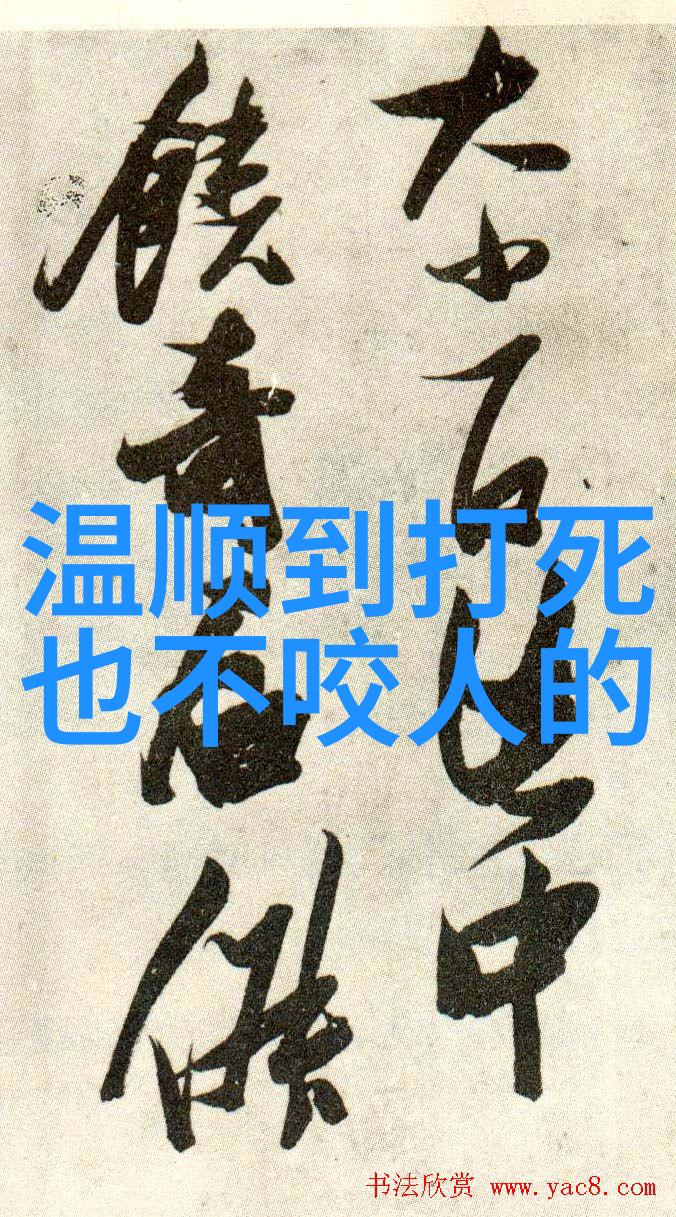 大小中
饒奇
温顺到打死
也不咬人的
书法欣赏 www.yac8.com